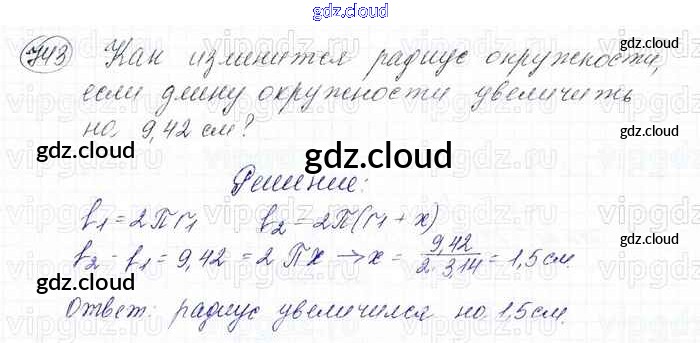 gdz.cloud
743 Как изменится радиус окружности,
если длину окружности увеличить
на 9,42 см?
gdz.cloud
gdz.cloud
gdz.cloud
Решение:
l₁ = 2πr₁ l₂ = 2π(r₁ + x)
l₂ - l₁ = 9,42 = 2πx → x = 9,42 / 2·3,14 = 1,5 см.
gdz.cloud
gdz.cloud
Ответ: радиус увеличился на 1,5 см.